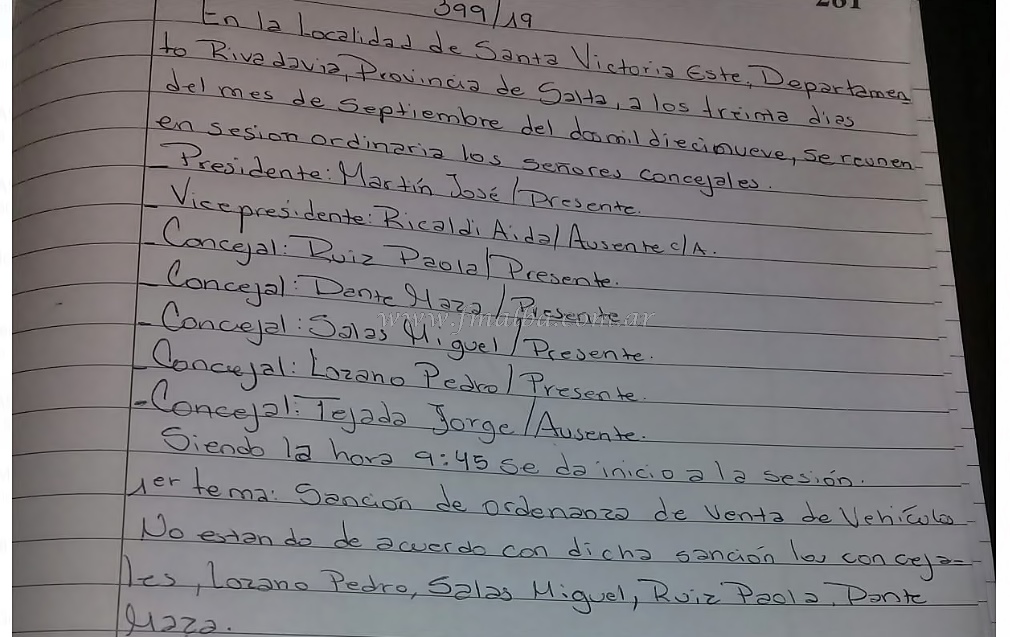 399/19
En la Localidad de Santa Victoria Este, Departamen
to Rivadavia, Provincia de Salta, a los treinta dias
del mes de Septiembre del dosmil diecinueve, se reunen
en sesion ordinaria los señores concejales.
- Presidente: Martín José / Presente.
- Vicepresidente: Ricaldi Aida / Ausente c/A.
- Concejal: Ruiz Paola / Presente.
- Concejal: Dante Maza / Presente
www.fmalba.com.ar
- Concejal: Salas Miguel / Presente.
- Concejal: Lozano Pedro / Presente.
- Concejal: Tejada Jorge / Ausente.
Siendo la hora 9:45 se da inicio a la sesión.
1er tema: Sanción de ordenanza de Venta de Vehículo
No estando de acuerdo con dicha sanción los conceja=
les, Lozano Pedro, Salas Miguel, Ruiz Paola, Dante
Maza.